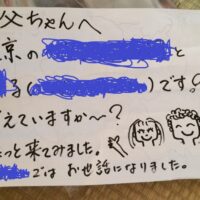 父ちゃんへ
京の と
る( )です?
えていますか〜?
っと来てみました。
では お世話になりました。